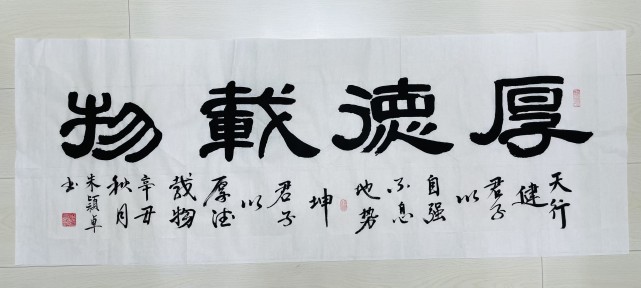 厚德載物
天行
健
君子
以
自强
不息
地势
坤
君子
以
厚德
载物
辛丑
秋月
朱颖卓
书